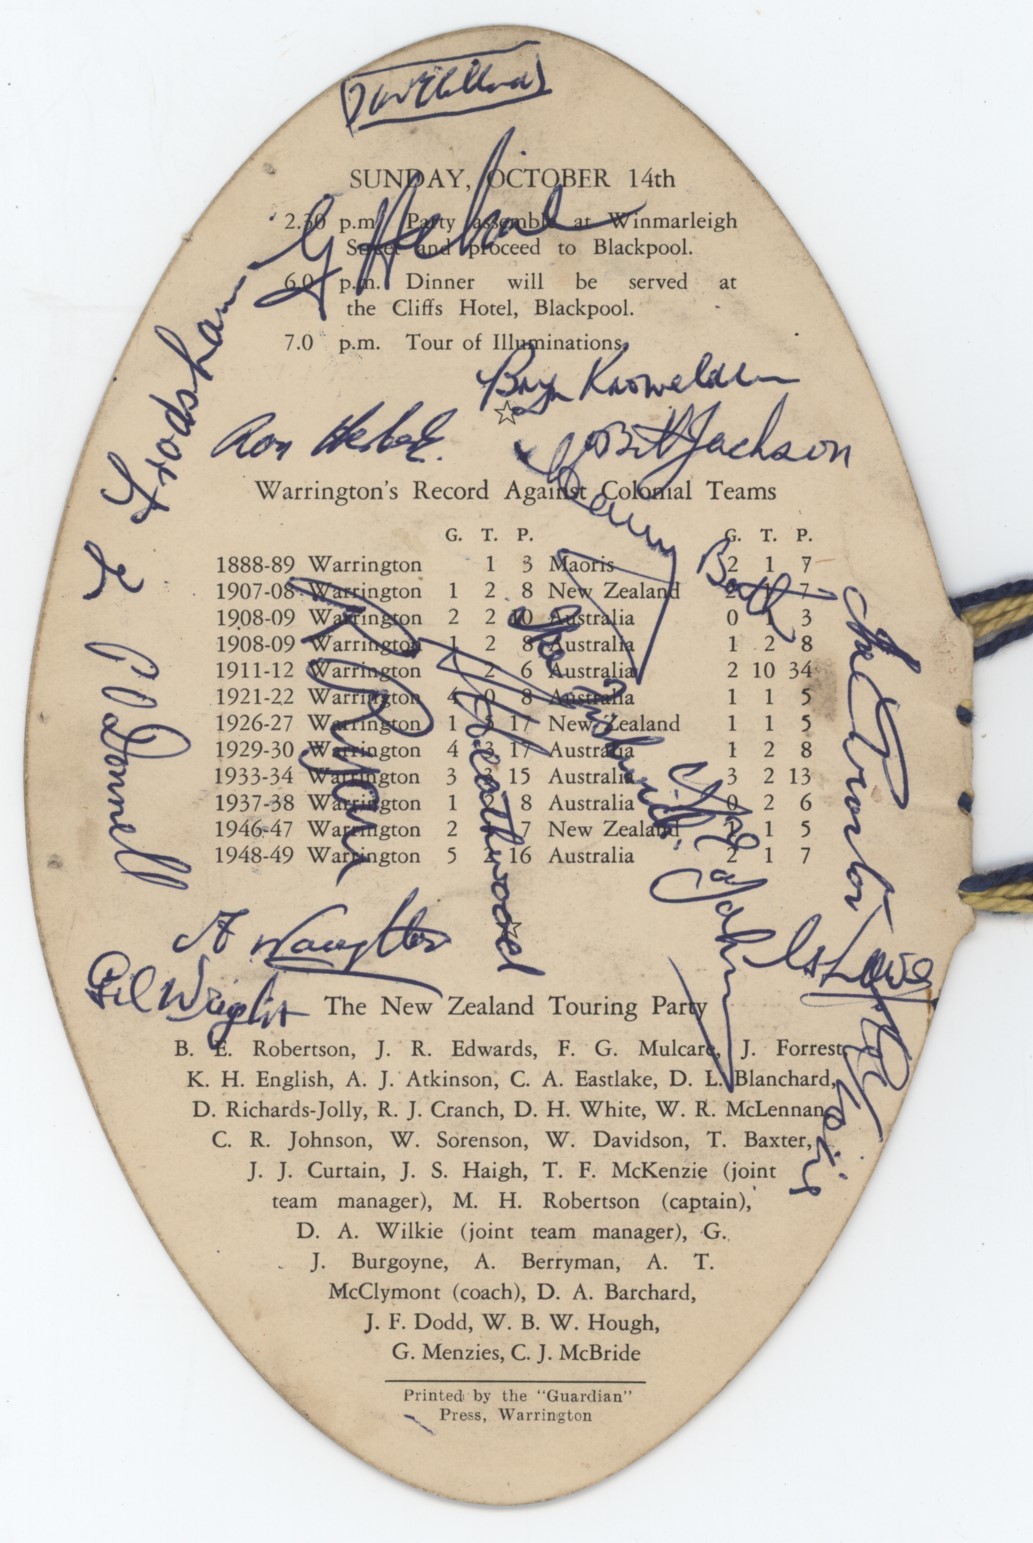 SUNDAY, OCTOBER 14th
2.30 p.m. Party assemble at Winmarleigh
Street and proceed to Blackpool.
6.0 p.m. Dinner will be served at
the Cliffs Hotel, Blackpool.
7.0 p.m. Tour of Illuminations.
Bryn Knowelden
Ron
Jackson
L Frodsham
Warrington's Record Against Colonial Teams
G. T. P. G. T. P.
1888-89 Warrington 1 3 Maoris 2 1 7
1907-08 Warrington 1 2 8 New Zealand 2 1 7
1908-09 Warrington 2 2 10 Australia 0 1 3
1908-09 Warrington 1 2 8 Australia 1 2 8
1911-12 Warrington 2 6 Australia 2 10 34
1921-22 Warrington 4 0 8 Australia 1 1 5
1926-27 Warrington 1 5 17 New Zealand 1 1 5
1929-30 Warrington 4 3 17 Australia 1 2 8
1933-34 Warrington 3 15 Australia 3 2 13
1937-38 Warrington 1 8 Australia 0 2 6
1946-47 Warrington 2 7 New Zealand 1 5
1948-49 Warrington 5 2 16 Australia 2 1 7
Ryan
Heathwood
A Naughton
Gil Wright
The New Zealand Touring Party
B. E. Robertson, J. R. Edwards, F. G. Mulcare, J. Forrest,
K. H. English, A. J. Atkinson, C. A. Eastlake, D. L. Blanchard,
D. Richards-Jolly, R. J. Cranch, D. H. White, W. R. McLennan,
C. R. Johnson, W. Sorenson, W. Davidson, T. Baxter,
J. J. Curtain, J. S. Haigh, T. F. McKenzie (joint
team manager), M. H. Robertson (captain),
D. A. Wilkie (joint team manager), G.
J. Burgoyne, A. Berryman, A. T.
McClymont (coach), D. A. Barchard,
J. F. Dodd, W. B. W. Hough,
G. Menzies, C. J. McBride
Printed by the "Guardian"
Press, Warrington